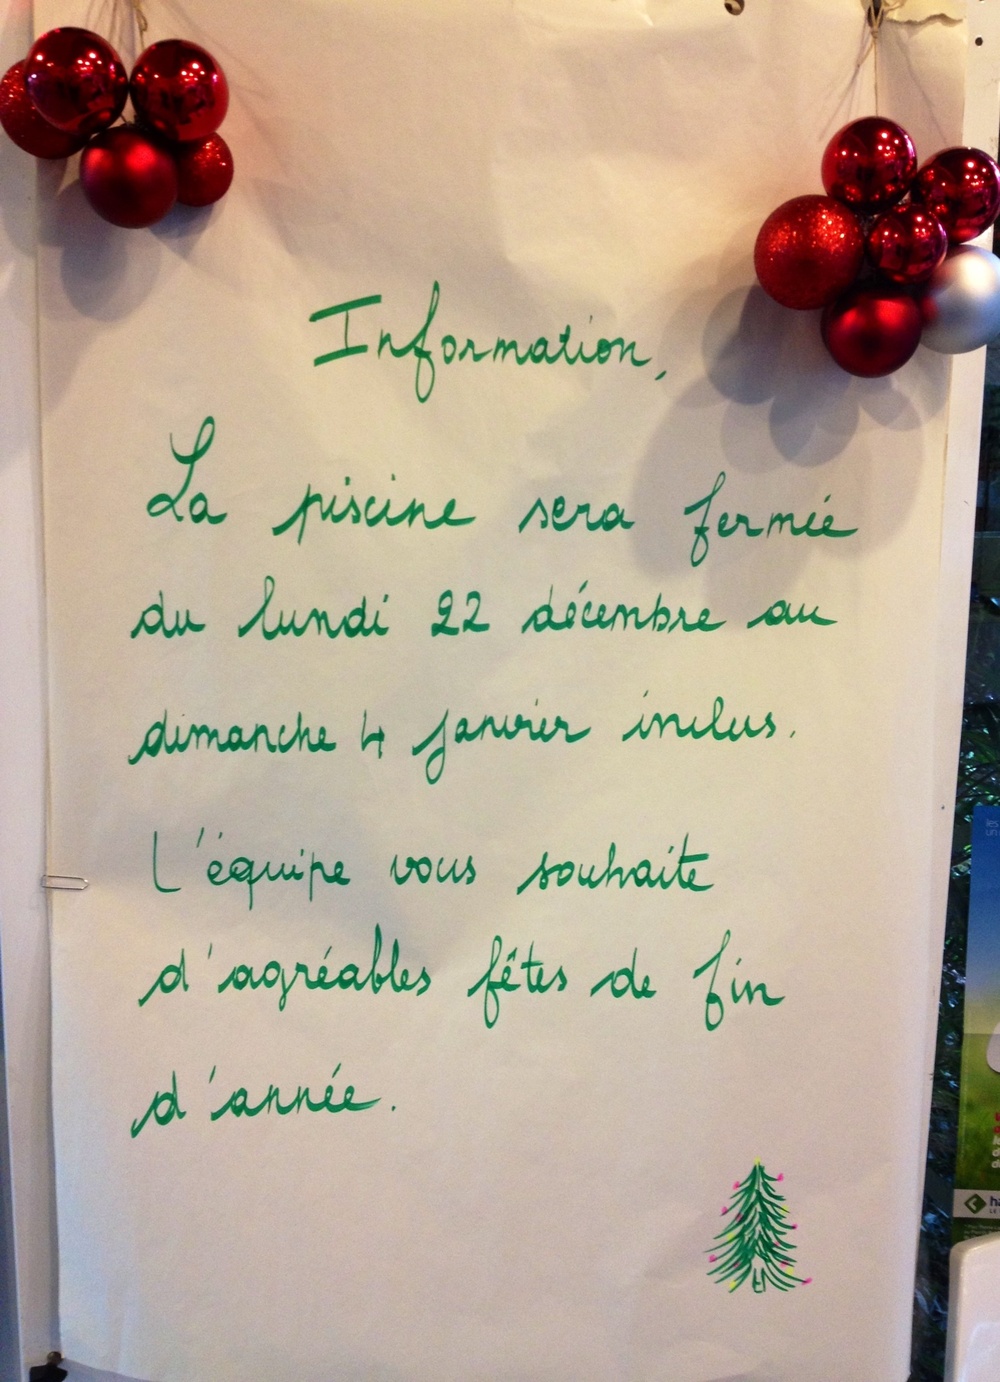 Information,
La piscine sera fermée
du lundi 22 décembre au
dimanche 4 janvier inclus.
L'équipe vous souhaite
d'agréables fêtes de fin
d'année.
les
un